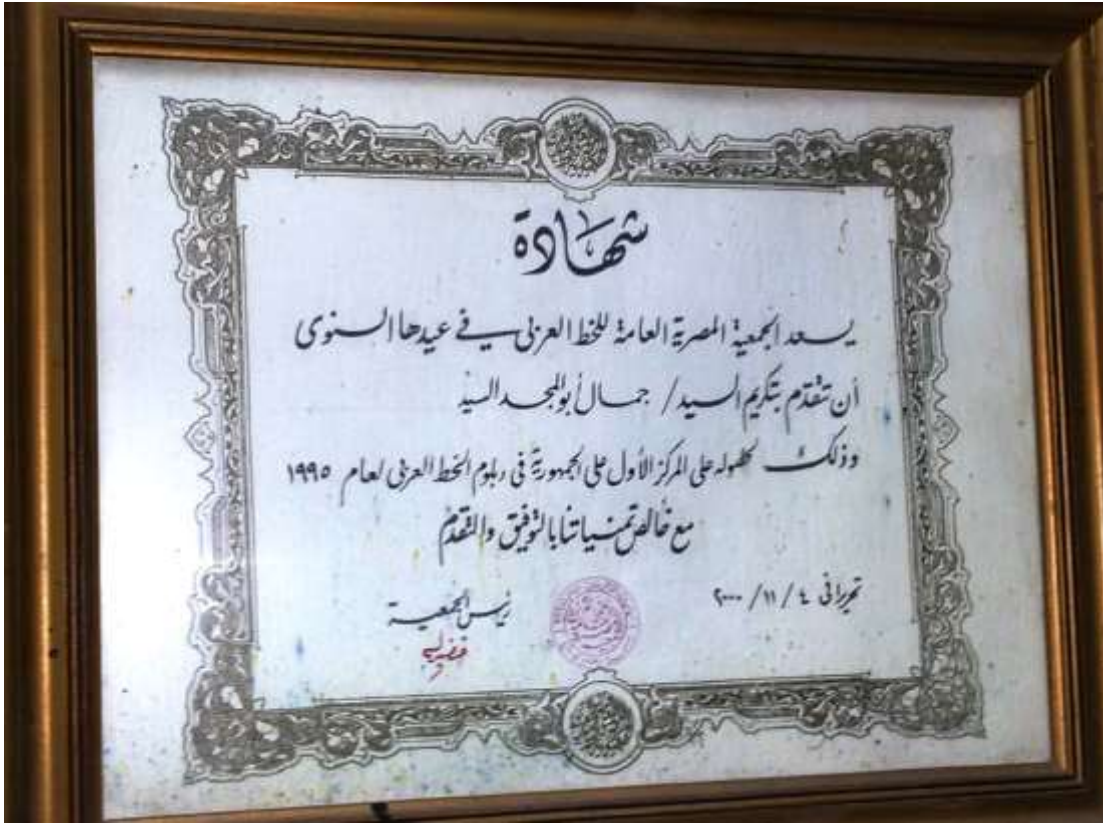 شهادة
يسعد الجمعية المصرية العامة للخط العربى في عيدها السنوى
أن تتقدم بتكريم السيد / جمال أبو المجد السيد
وذلك لحصوله على المركز الأول على الجمهورية فى دبلوم الخط العربى لعام ١٩٩٥
مع خالص تمنياتنا بالتوفيق والتقدم
تحريرا فى ٤ / ١١ / ٢٠٠٠
رئيس الجمعية